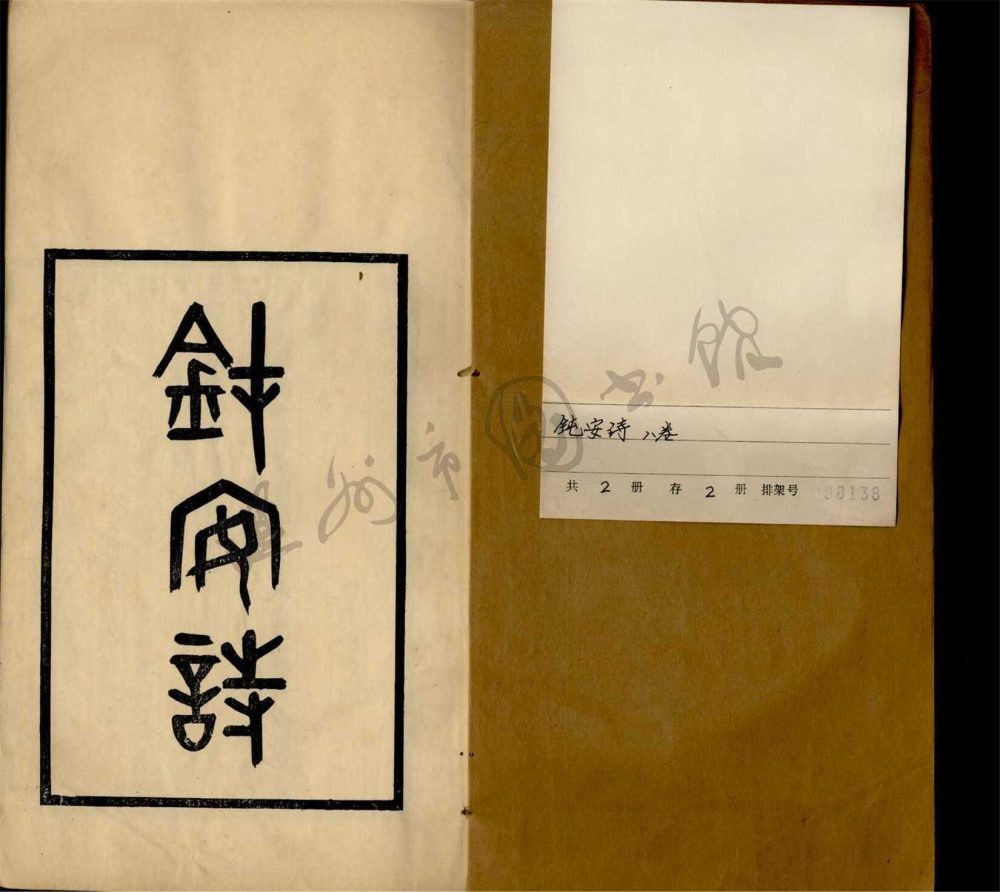 鈍安詩
钝安诗 八卷
共 2 册 存 2 册 排架号 98138
温州市图书馆